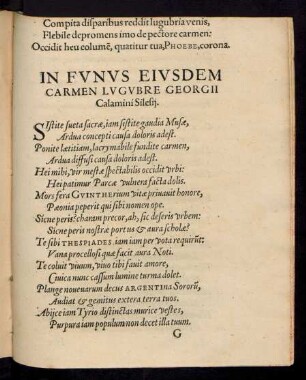 Compita disparibus reddit lugubria venis,
Flebile depromens imo de pectore carmen:
Occidit heu columē, quatitur tua, PHOEBE, corona.
IN FVNVS EIVSDEM
CARMEN LVGVBRE GEORGII
Calamini Silesij.
SIstite sueta sacræ, iam sistite gaudia Musæ,
Ardua concepti causa doloris adest.
Ponite lætitiam, lacrymabile fundite carmen,
Ardua diffusi causa doloris adest.
Hei mihi, vir mestæ spectabilis occidit vrbi:
Hei patimur Parcæ vulnera facta dolis.
Mors fera GVINTHERIVM vitæ priuauit honore,
Pæonia peperit qui sibi nomen ope.
Siccne peris? charam precor, ah, sic deseris vrbem:
Sicne peris nostræ portus & aura scholæ?
Te sibi THESPIADES iam iam per vota requirūt:
Vana procellosi quæ facit aura Noti.
Te coluit viuum, viuo tibi fauit amore,
Ciuica nunc cassum lumine turma dolet.
Plange nouenarum decus ARGENTINA Sororū,
Audiat & gemitus extera terra tuos.
Abijce iam Tyrio distinctas murice vestes,
Purpura iam populum non decet illa tuum.
G